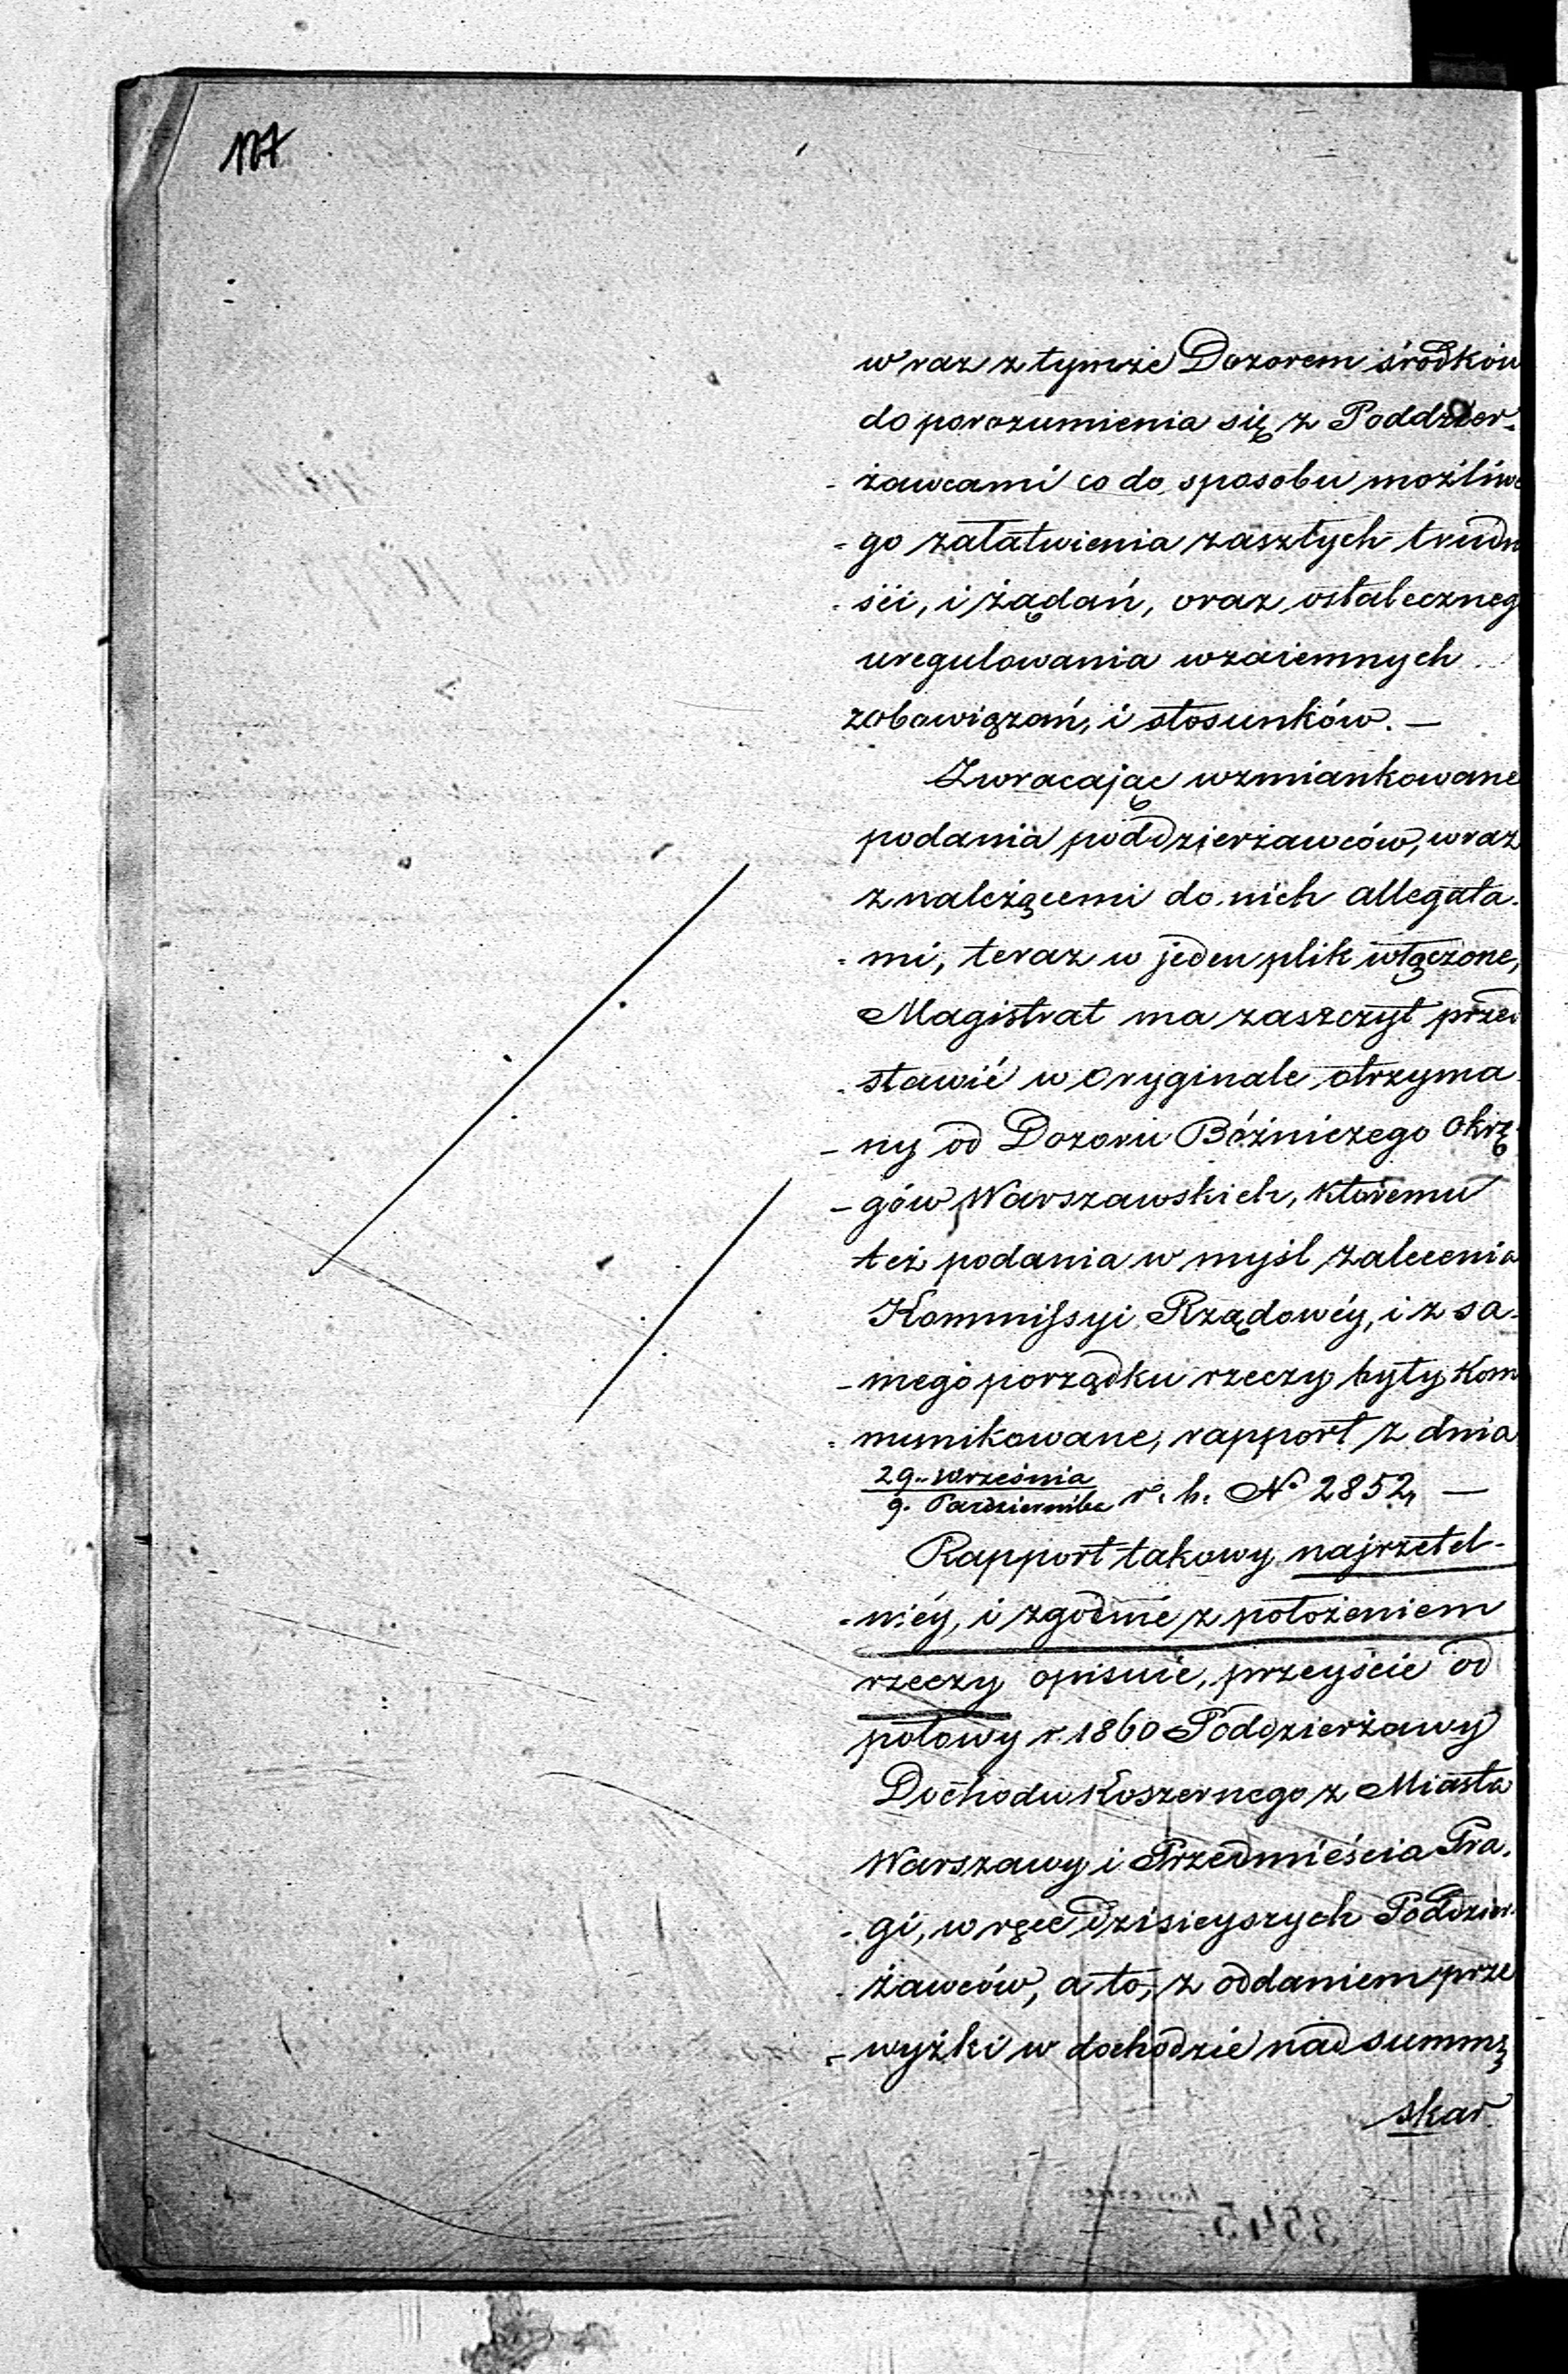 127
wraz z tymże Dozorem środków
do porozumienia się z Poddzier-
- żawcami co do sposobu możliwe
- go załatwienia zaszłych trudn
- ści, i żądań, oraz ostateczneg
uregulowania wzaiemnych
zobowiązań, i stosunków. —
Zwracając wzmiankowane
podania poddzierżawców, wraz
z należącemi do nich allegata-
- mi, teraz w jeden plik włączone,
Magistrat ma zaszczyt przed
- stawić w oryginale otrzyma
- ny od Dozoru Bóźniczego Okrę
- gów Warszawskich, któremu
też podania w myśl zalecenia
Kommissyi Rządowéy, i z sa-
- mego porządku rzeczy były kom
- munikowane, rapport z dnia
29. Września
9. Października r. b. No 2852, —
Rapport takowy najrzetel-
- niéy, i zgodnie z położeniem
rzeczy opisuie, przeyście od
połowy r. 1860 Poddzierżawy
Dochodu Koszernego z Miasta
Warszawy i Przedmieścia Pra-
- gi, w ręce dzisieyszych Poddzier-
- żawców, a to, z oddaniem prze
- wyżki w dochodzie nad summę
skar
3545